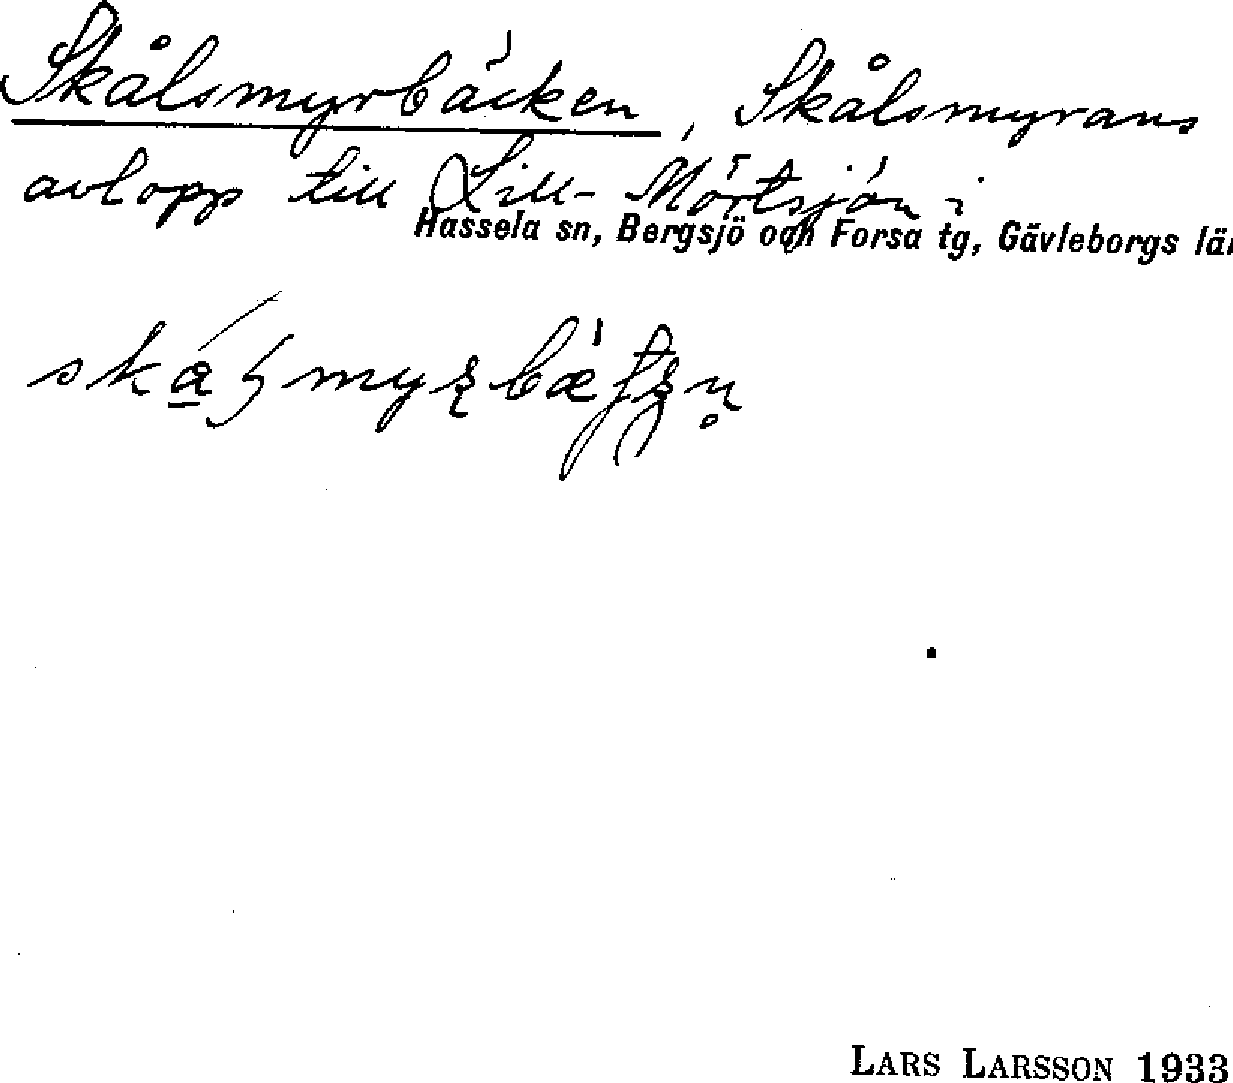 Skålsmyrbäcken, Skålsmyrans
avlopp till Lill-Mörtsjön i
Hassela sn, Bergsjö och Forsa tg, Gävleborgs län
LARS LARSSON 1933